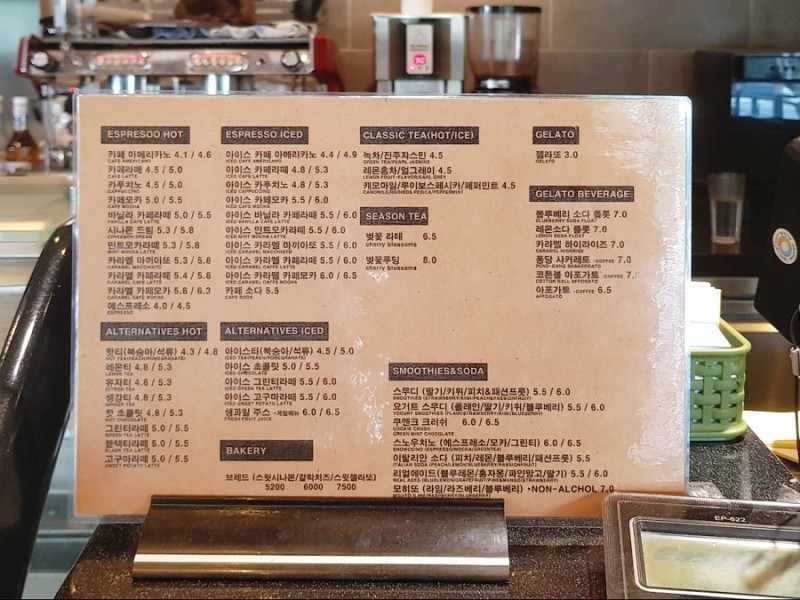 ESPRESOO HOT
카페 아메리카노 4.1 / 4.6
CAFE AMERICANO
카페라떼 4.5 / 5.0
CAFE LATTE
카푸치노 4.5 / 5.0
CAPPUCCINO
카페모카 5.0 / 5.5
CAFE MOCHA
바닐라 카페라떼 5.0 / 5.5
VANILLA CAFE LATTE
시나몬 드림 5.3 / 5.8
CINNAMON DREAM
민트모카라떼 5.3 / 5.8
MINT MOCHA LATTE
카라멜 마끼아또 5.3 / 5.8
CARAMEL MACCHIATO
카라멜 카페라떼 5.4 / 5.8
CARAMEL CAFFE LATTE
카라멜 카페모카 5.8 / 6.3
CARAMEL CAFE MOCHA
에스프레소 4.0 / 4.5
ESPRESSO
ALTERNATIVES HOT
핫티(복숭아/석류) 4.3 / 4.8
HOT TEA(PEACH/POMEGRANATE)
레몬티 4.8 / 5.3
LEMON TEA
유자티 4.8 / 5.3
CITRON TEA
생강티 4.8 / 5.3
GINGER TEA
핫 초콜릿 4.8 / 5.3
HOT CHOCOLATE
그린티라떼 5.0 / 5.5
GREEN TEA LATTE
블랙티라떼 5.0 / 5.5
BLACK TEA LATTE
고구마라떼 5.0 / 5.5
SWEET POTATO LATTE
ESPRESSO ICED
아이스 카페 아메리카노 4.4 / 4.9
ICED CAFE AMERICANO
아이스 카페라떼 4.8 / 5.3
ICED CAFE LATTE
아이스 카푸치노 4.8 / 5.3
ICED CAPPUCCINO
아이스 카페모카 5.5 / 6.0
ICED CAFE MOCHA
아이스 바닐라 카페라떼 5.5 / 6.0
ICED VANILLA CAFE LATTE
아이스 민트모카라떼 5.5 / 6.0
ICED MINT MOCHA LATTE
아이스 카라멜 마끼아또 5.5 / 6.0
ICED CARAMEL MACCHIATO
아이스 카라멜 카페라떼 5.5 / 6.0
ICED CARAMEL CAFFE LATTE
아이스 카라멜 카페모카 6.0 / 6.5
ICED CARAMEL CAFFE MOCHA
카페 소다 5.5
CAFE SODA
ALTERNATIVES ICED
아이스티(복숭아/석류) 4.5 / 5.0
ICED TEA(PEACH/POMEGRANATE)
아이스 초콜릿 5.0 / 5.5
ICED CHOCOLATE
아이스 그린티라떼 5.5 / 6.0
ICED GREEN TEA LATTE
아이스 고구마라떼 5.5 / 6.0
ICED SWEET POTATO LATTE
생과일 주스 •계절메뉴 6.0 / 6.5
FRESH FRUIT JUICE
BAKERY
브레드 (스윗시나몬/갈릭치즈/스윗젤라또)
5200 6000 7500
CLASSIC TEA(HOT/ICE)
녹차/진주자스민 4.5
GREEN TEA/PEARL JASMINE
레몬홍차/얼그레이 4.5
LEMON FRUIT-FLAVOR/EARL GREY
캐모마일/루이보스페시카/페퍼민트 4.5
CAMOMILE/ROOIBOS PESICA/PEPPERMINT
SEASON TEA
벚꽃 라떼 6.5
cherry blossoms
벚꽃푸딩 8.0
cherry blossoms
SMOOTHIES&SODA
스무디 (딸기/키위/피치&패션프룻) 5.5 / 6.0
SMOOTHIE(STRAWBERRY/KIWI/PEACH&PASSIONFRUIT)
요거트 스무디 (플레인/딸기/키위/블루베리) 5.5 / 6.0
YOGURT SMOOTHIE (PLAIN/STRAWBERRY/KIWI/BLUEBERRY)
쿠앤크 크러쉬 6.0 / 6.5
COOKIE CRUSH
GREEN MINT CHOCOLATE
스노우치노 (에스프레소/모카/그린티) 6.0 / 6.5
SNOWCCINO (ESPRESSO/MOCHA/GREENTEA)
이탈리안 소다 (피치/레몬/블루베리/패션프룻) 5.5
ITALIAN SODA (PEACH/LEMON/BLUEBERRY/PASSION FRUIT)
리얼에이드(블루레몬/홍자몽/파인망고/딸기) 5.5 / 6.0
REAL ADES (BLUELEMON/GRAPEFRUIT/PINEMANGO/STRAWBERRY)
모히또 (라임/라즈베리/블루베리) •NON-ALCHOL 7.0
GELATO
젤라또 3.0
GELATO
GELATO BEVERAGE
블루베리 소다 플롯 7.0
BLUEBERRY SODA FLOAT
레몬소다 플롯 7.0
LEMON SODA FLOAT
카라멜 하이라이즈 7.0
CARAMEL HIGHRISE
퐁당 샤케레또 •COFFEE 7.0
PONG-DANG SHAKERRATO
코튼볼 아포가토 •COFFEE 7.
COTTON BALL AFFOGATO
아포가토 •COFFEE 6.5
AFFOGATO
EP-622